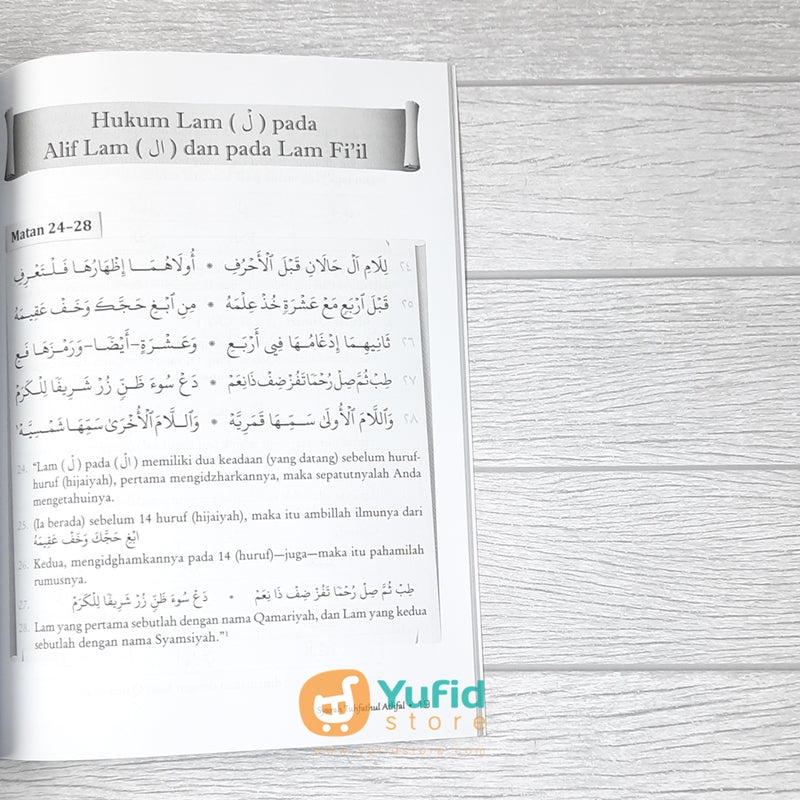 Hukum Lam ( لْ ) pada
Alif Lam ( ال ) dan pada Lam Fi'il
Matan 24–28
٢٤ لِلَامِ اَلْ حَالَانِ قَبْلَ الْأَحْرُفِ * أُولَاهُمَـا إِظْهَارُهَـا فَـلْـتَـعْـرِفِ
٢٥ قَبْلَ ارْبَعٍ مَعْ عَشْرَةٍ خُذْ عِلْمَهُ * مِنِ ابْغِ حَجَّكَ وَخَفْ عَقِيمَهُ
٢٦ ثَانِيهِمَا إِدْغَامُـهَـا فِي أَرْبَـعِ * وَعَـشْـرَةٍ–أَيْـضًـا–وَرَمْـزَهَـا فَـعِ
٢٧ طِبْ ثُمَّ صِلْ رُحْمًا تَفُزْ ضِفْ ذَا نِعَمْ * دَعْ سُوءَ ظَنٍّ زُرْ شَرِيفًا لِلْكَرَمْ
٢٨ وَاللَّامَ الْأُولَى سَـمِّـهَـا قَمَرِيَّهْ * وَالـلَّامَ الْأُخْـرَى سَمِّهَـا شَمْسِيَّهْ
24. "Lam ( لْ ) pada ( الْ ) memiliki dua keadaan (yang datang) sebelum huruf-
huruf (hijaiyah), pertama mengidzharkannya, maka sepatutnyalah Anda
mengetahuinya.
25. (Ia berada) sebelum 14 huruf (hijaiyah), maka itu ambillah ilmunya dari
ابْغِ حَجَّكَ وَخَفْ عَقِيمَهُ
26. Kedua, mengidghamkannya pada 14 (huruf)—juga—maka itu pahamilah
rumusnya.
27. طِبْ ثُمَّ صِلْ رُحْمًا تَفُزْ ضِفْ ذَا نِعَمْ * دَعْ سُوءَ ظَنٍّ زُرْ شَرِيفًا لِلْكَرَمْ
28. Lam yang pertama sebutlah dengan nama Qamariyah, dan Lam yang kedua
sebutlah dengan nama Syamsiyah."¹
Syarah Tuhfathul Athfal • 49
Yufid
store
www.yufidstore.com